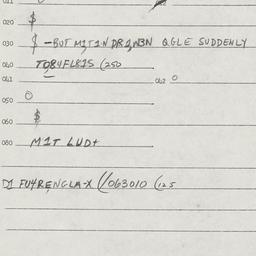 011
020 $
030 $ -BUT M1T1N DR1W3N QGLE SUDDENLY
040 TO84FL81S (250
041 042 0
050 0
060 $
080 M1T LUD+
D1 FU4RENGLM-X (/063010 (125